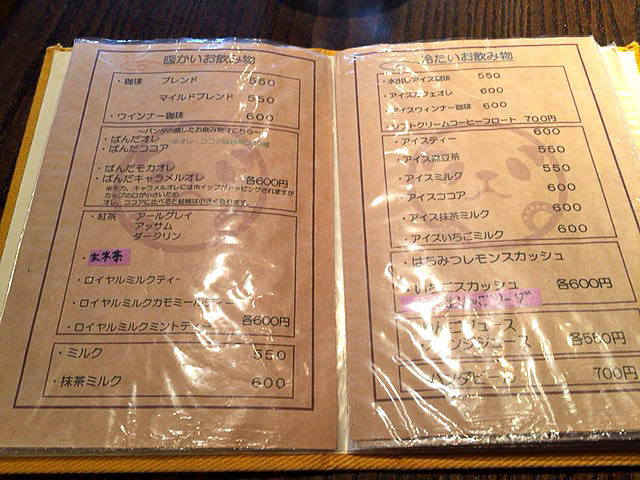 暖かいお飲み物
・珈琲 ブレンド 550
マイルドブレンド 550
・ウインナー珈琲 600
～パンダの顔したお飲み物はこちら～
・ぱんだオレ
・ぱんだココア
・ぱんだモカオレ
・ぱんだキャラメルオレ 各600円
※モカ、キャラメルオレにはホイップがトッピングされますが
カップの口が小さいため
オレ、ココアに比べると絵柄は小さくなります。
・紅茶 アールグレイ
アッサム
ダージリン
・玄米茶
・ロイヤルミルクティー
・ロイヤルミルクカモミールティー
・ロイヤルミルクミントティー 各600円
・ミルク 550
・抹茶ミルク 600
冷たいお飲み物
・水出しアイス珈琲 550
・アイスカフェオレ 600
・アイスウィンナー珈琲 600
・ソフトクリームコーヒーフロート 700円
・アイスティー 600
・アイス黒豆茶 550
・アイスミルク 550
・アイスココア 600
・アイス抹茶ミルク 600
・アイスいちごミルク 600
・はちみつレモンスカッシュ
・いちごスカッシュ 各600円
りんごジュース
オレンジジュース 各550円
700円